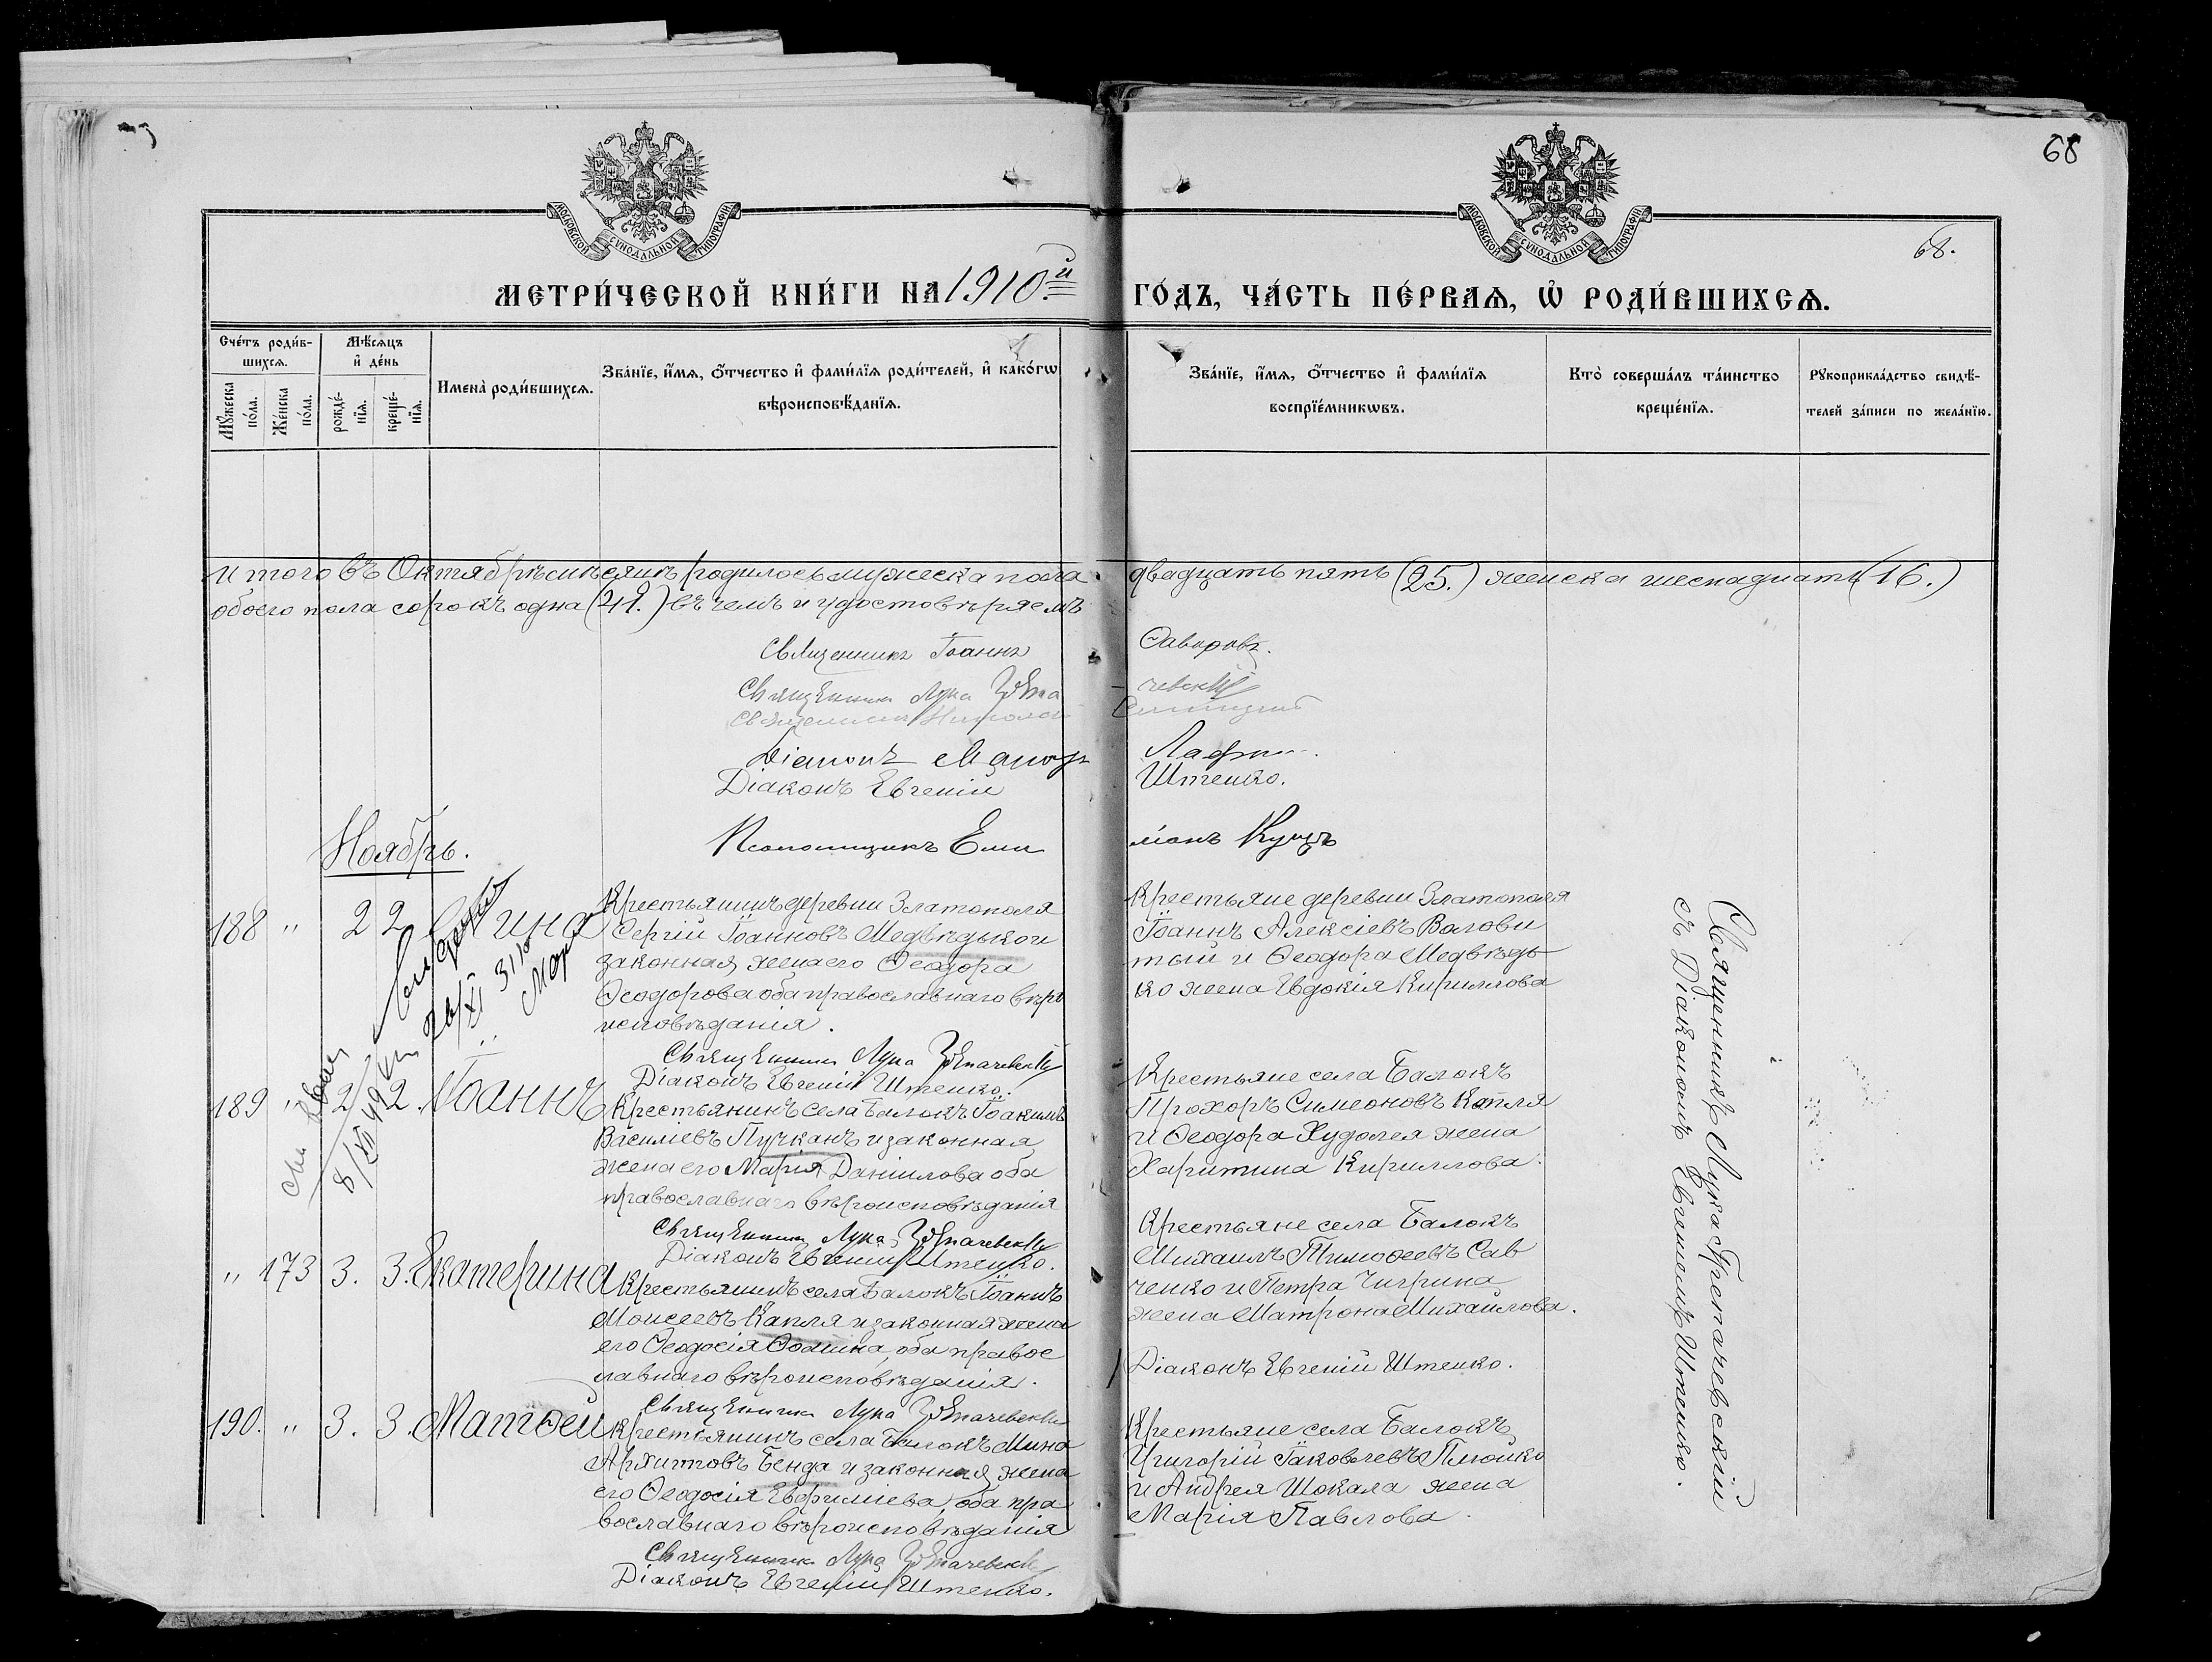 68
МОСКОВСКОЙ СУНОДАЛЬНОЙ ТИПОГРАФІИ.
МОСКОВСКОЙ СУНОДАЛЬНОЙ ТИПОГРАФІИ.
68.
МЕТРИ́ЧЕСКОЙ КНИ́ГИ НА 1910.й ГО́ДЪ, ЧА́СТЬ ПЕ́РВАѦ, Ѡ҆ РОДИ́ВШИХСѦ.
Сче́тъ роди́в-
шихсѧ.
Мꙋ́жеска по́ла.
Же́нска по́ла.
Мѣ́сѧцъ
и҆ де́нь
рожде́-
нїѧ.
креще́-
нїѧ.
Имена̀ роди́вшихсѧ.
Зва́нїе, и҆́мѧ, ѻ҆́тчество и҆ фами́лїѧ роди́телей, и҆ како́гѡ
вѣроисповѣ́данїѧ.
Зва́нїе, и҆́мѧ, ѻ҆́тчество и҆ фами́лїѧ
воспрїе́мникѡвъ.
Кто̀ соверша́лъ та́инство
креще́нїѧ.
Рꙋкоприкла́дство свидѣ́-
телей за́писи по жела́нїю.
Итого въ Октябрѣ мѣсяцѣ родилось мужеска пола двадцать пять (25.) женска шестнадцать (16.)
обоего пола сорокъ одна (41.) въ чемъ и удостовѣряемъ
Священникъ Іоаннъ
Священникъ Лука
чевскій
Священникъ Николай
Діаконъ
Діаконъ Евгеній Штенко.
Псаломщикъ Емиліанъ
Ноябрь.
188 " 2 2
Крестьянинъ деревни Златополя
Сергій Іоанновъ Медвѣдько и
законная жена его Ѳеодора
Ѳеодорова оба православнаго вѣро
исповѣданія.
Священникъ Лука
Діаконъ Евгеній Штенко.
Крестьяне деревни Златополя
Іоаннъ Алексіевъ Волови
тый и Ѳеодора Медвѣдь
ко жена Евдокія Кириллова
189 " 2 2. Іоаннъ
Крестьянинъ села Балокъ Іоакимъ
Василіевъ Пучканъ и законная
жена его Марія Даніилова оба
православнаго вѣроисповѣданія
Священникъ Лука
Діаконъ Евгеній Штенко.
Крестьяне села Балокъ
Прохоръ Симеоновъ Капля
и Ѳеодора Худолея жена
Харитина Кириллова.
" 173 3. 3. Екатерина
Крестьянинъ села Балокъ Іоаннъ
Моисеевъ Капля и законная жена
его Ѳеодосія Ѳомина, оба правос
лавнаго вѣроисповѣданія.
Священникъ Лука
Діаконъ Евгеній Штенко.
Крестьяне села Балокъ
Михаилъ Тимоѳеевъ Сав
ченко и Петра Чигрина
жена Матрона Михайлова.
190. " 3. 3. Матѳей
Крестьянинъ села Балокъ Мина
Бенда и законная жена
его Ѳеодосія Евфиміева, оба пра
вославнаго вѣроисповѣданія
Священникъ Лука
Діаконъ Евгеній Штенко.
Крестьяне села Балокъ
Григорій Іаковлевъ
и Андрея Шокала жена
Марія Павлова.
Священникъ Лука Гречачевскій
съ Діакономъ Евгеніемъ Штенко.